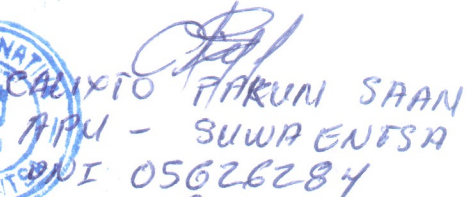 NATI
CALIXTO PAKUM SAAM
APU - SUWA ENTSA
DNI 05626284